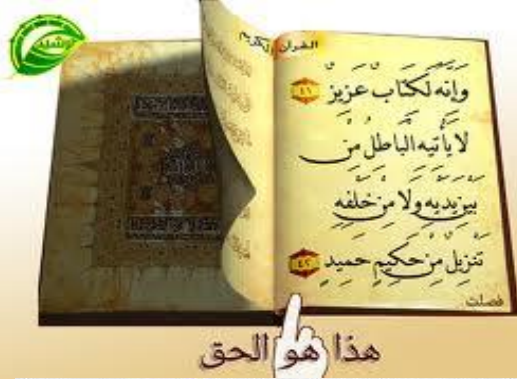 القرآن الكريم
وَإِنَّهُ لَكِتَابٌ عَزِيزٌ ٤١
لا يَأْتِيهِ الباطل مِن
بَيْنِ يَدَيْهِ وَلا مِنْ خَلْفِهِ
تَنْزِيلٌ مِنْ حَكِيمٍ حَمِيدٍ ٤٢
فصلت
هذا هو الحق